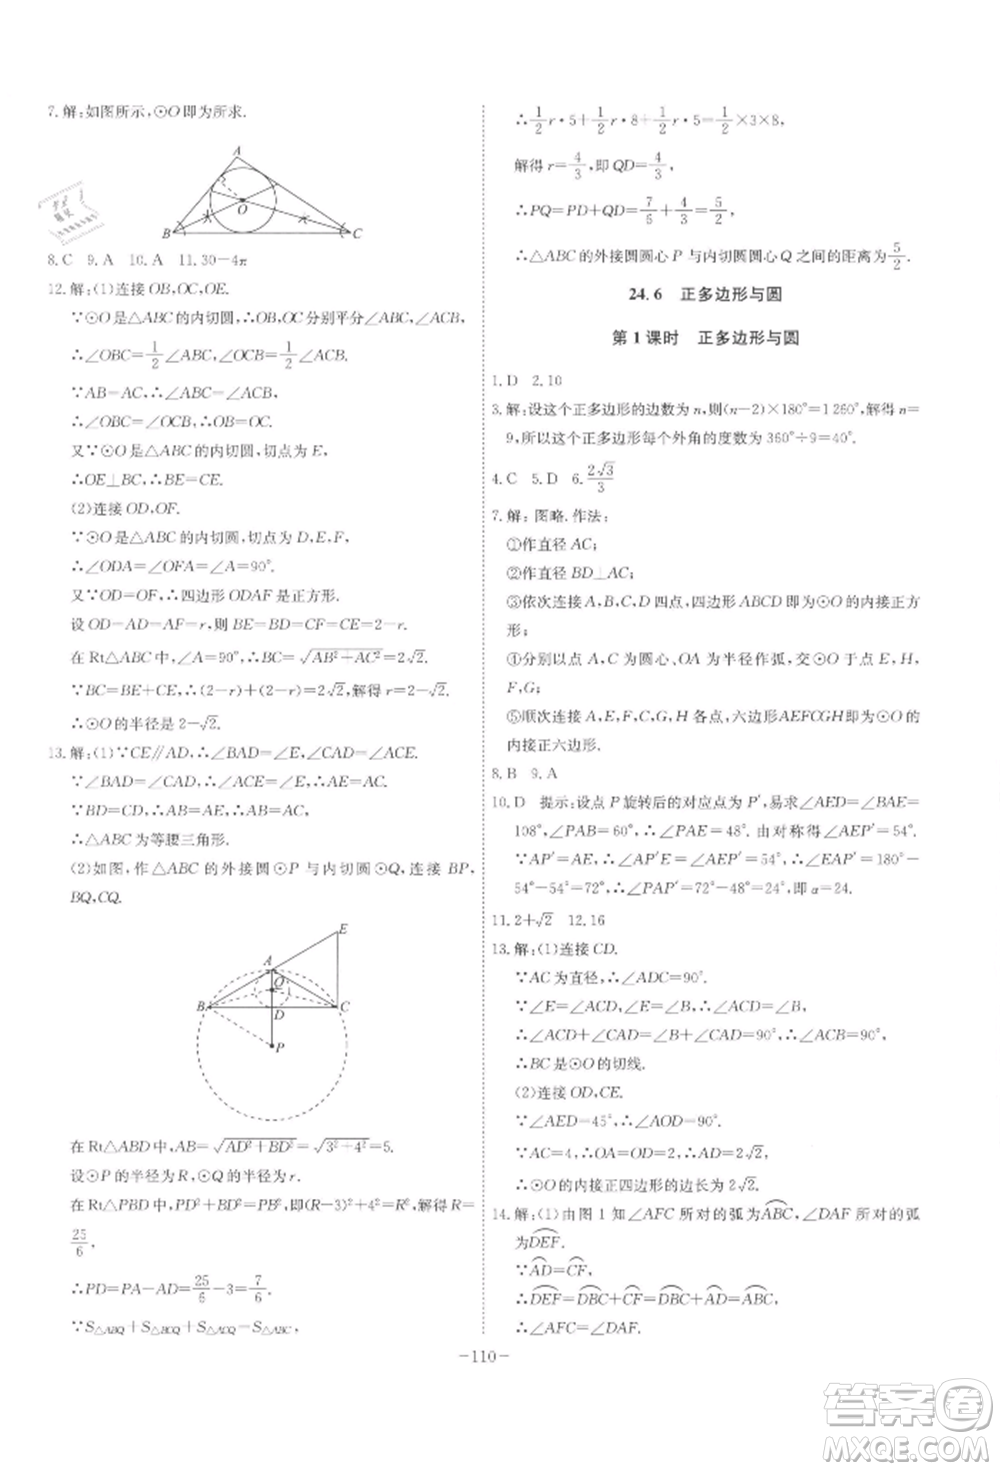 7.解:如图所示,⊙O即为所求.
A
O
B
C
8.C 9.A 10.A 11.30-4π
12.解:(1)连接OB,OC,OE.
∵⊙O是△ABC的内切圆,∴OB,OC分别平分∠ABC,∠ACB,
∴∠OBC=1/2∠ABC,∠OCB=1/2∠ACB.
∵AB=AC,∴∠ABC=∠ACB,
∴∠OBC=∠OCB,∴OB=OC.
又∵⊙O是△ABC的内切圆,切点为E,
∴OE⊥BC,∴BE=CE.
(2)连接OD,OF.
∵⊙O是△ABC的内切圆,切点为D,E,F,
∴∠ODA=∠OFA=∠A=90°.
又∵OD=OF,∴四边形ODAF是正方形.
设OD=AD=AF=r,则BE=BD=CF=CE=2-r.
在Rt△ABC中,∠A=90°,∴BC=√(AB²+AC²)=2√2.
∵BC=BE+CE,∴(2-r)+(2-r)=2√2,解得r=2-√2.
∴⊙O的半径是2-√2.
13.解:(1)∵CE∥AD,∴∠BAD=∠E,∠CAD=∠ACE.
∵∠BAD=∠CAD,∴∠ACE=∠E,∴AE=AC.
∵BD=CD,∴AB=AE,∴AB=AC,
∴△ABC为等腰三角形.
(2)如图,作△ABC的外接圆⊙P与内切圆⊙Q,连接BP,
BQ,CQ.
E
A
Q
B
D
C
P
在Rt△ABD中,AB=√(AD²+BD²)=√(3²+4²)=5.
设⊙P的半径为R,⊙Q的半径为r.
在Rt△PBD中,PD²+BD²=PB²,即(R-3)²+4²=R²,解得R=
25/6,
∴PD=PA-AD=25/6-3=7/6.
∵S△ABQ+S△BCQ+S△ACQ=S△ABC,
∴1/2r·5+1/2r·8+1/2r·5=1/2×3×8,
解得r=4/3,即QD=4/3,
∴PQ=PD+QD=7/6+4/3=5/2.
∴△ABC的外接圆圆心P与内切圆圆心Q之间的距离为5/2.
24.6 正多边形与圆
第1课时 正多边形与圆
1.D 2.10
3.解:设这个正多边形的边数为n,则(n-2)×180°=1 260°,解得n=
9,所以这个正多边形每个外角的度数为360°÷9=40°.
4.C 5.D 6.2√3/3
7.解:图略.作法:
①作直径AC;
②作直径BD⊥AC;
③依次连接A,B,C,D四点,四边形ABCD即为⊙O的内接正方
形;
④分别以点A,C为圆心,OA为半径作弧,交⊙O于点E,H,
F,G;
⑤顺次连接A,E,F,C,G,H各点,六边形AEFCGH即为⊙O的
内接正六边形.
8.B 9.A
10.D 提示:设点P旋转后的对应点为P′,易求∠AED=∠BAE=
108°,∠PAB=60°,∴∠PAE=48°.由对称得∠AEP′=54°.
∵AP′=AE,∴∠AP′E=∠AEP′=54°,∴∠P′AE=180°-
54°-54°=72°,∴∠PAP′=72°-48°=24°,即α=24.
11.2+√2 12.16
13.解:(1)连接CD.
∵AC为直径,∴∠ADC=90°.
∵∠E=∠ACD,∠E=∠B,∴∠ACD=∠B,
∴∠ACD+∠CAD=∠B+∠CAD=90°,∴∠ACB=90°,
∴BC是⊙O的切线.
(2)连接OD,CE.
∵∠AED=45°,∴∠AOD=90°.
∵AC=4,∴OA=OD=2,∴AD=2√2,
∴⊙O的内接正四边形的边长为2√2.
14.解:(1)由图1知∠AFC所对的弧为ABC,∠DAF所对的弧
为DEF.
∵AD=CF,
∴DEF=DBC+CF=DBC+AD=ABC,
∴∠AFC=∠DAF.
-110-
答案圈
MXQE.COM